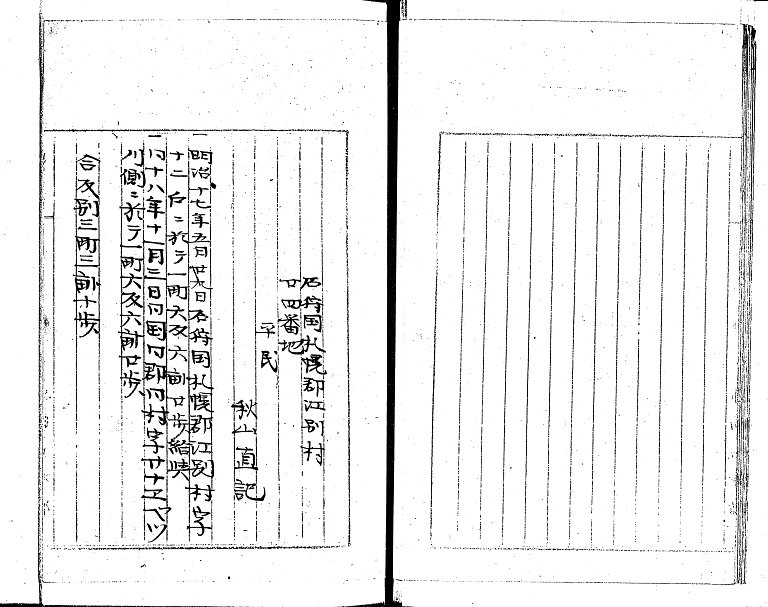 石狩国札幌郡江別村
廿四番地
平民
秋山直記
一明治十七年五月廿九日石狩国札幌郡江別村字
十二戸ニ於テ一町六反六畝廿歩給
一同十八年十一月三日同国同郡同村字
川側ニ於テ一町六反六畝廿歩
合反別三町三畝十歩